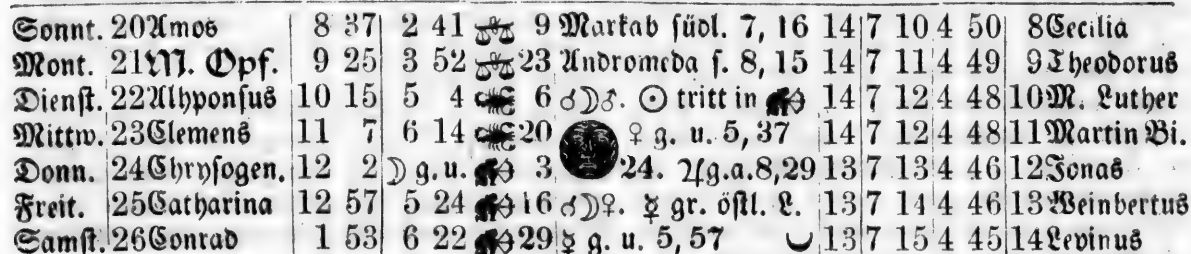 Sonnt. 20 Amos 8 37 2 41 ♎ 9 Markab südl. 7, 16 14 7 10 4 50 8 Cecilia
Mont. 21 M. Opf. 9 25 3 52 ♎ 23 Andromeda s. 8, 15 14 7 11 4 49 9 Theodorus
Dienst. 22 Alhponsus 10 15 5 4 ♏ 6 ☌☽♂. ☉ tritt in ♐ 14 7 12 4 48 10 M. Luther
Mittw. 23 Clemens 11 7 6 14 ♏ 20 ♀ g. u. 5, 37 14 7 12 4 48 11 Martin Bi.
Donn. 24 Chrysogen. 12 2 ☽ g. u. ♐ 3 24. ♃ g. a. 8, 29 13 7 13 4 46 12 Jonas
Freit. 25 Catharina 12 57 5 24 ♐ 16 ☌☽♀. ☿ gr. östl. L. 13 7 14 4 46 13 Weinbertus
Samst. 26 Conrad 1 53 6 22 ♐ 29 ☿ g. u. 5, 57 13 7 15 4 45 14 Levinus